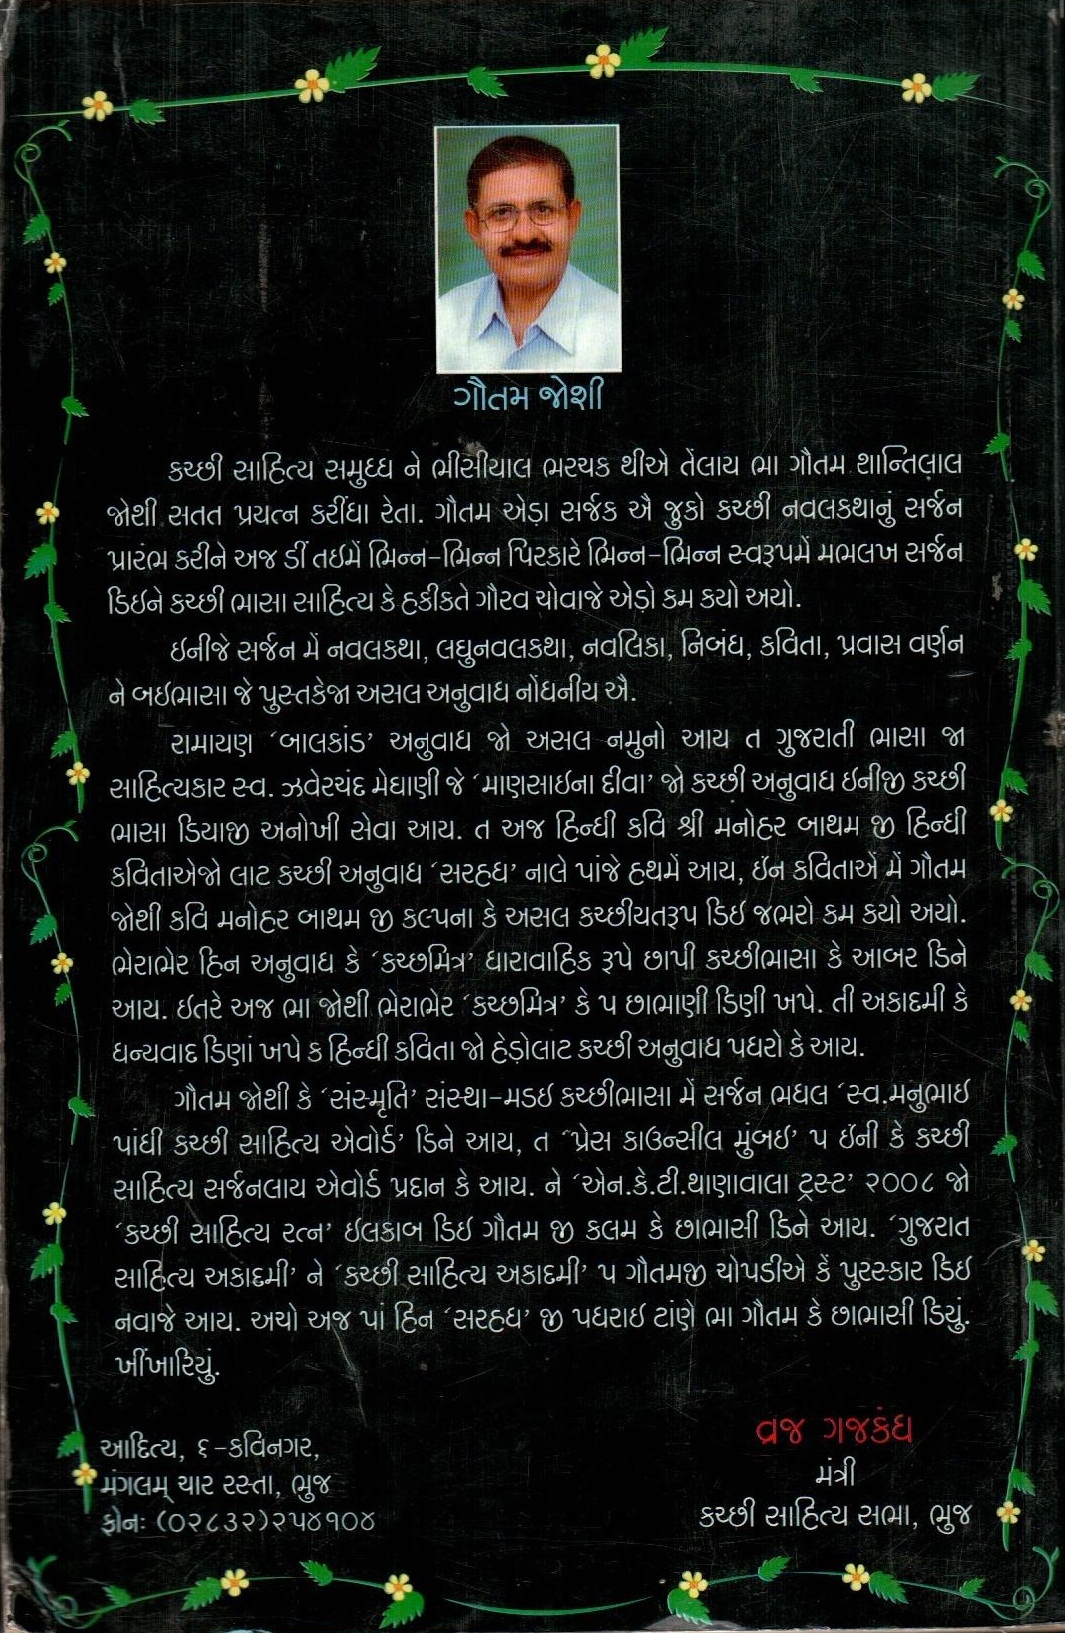 ગૌતમ જોશી
કચ્છી સાહિત્ય સમુધ્ધ ને ભીસીયાલ ભરચક થીએ તેંલાય ભા ગૌતમ શાન્તિલાલ
જોશી સતત પ્રયત્ન કરીંધા રેતા. ગૌતમ એડા સર્જક ઐ જુકો કચ્છી નવલકથાનું સર્જન
પ્રારંભ કરીને અજ ડીં તઇમેં ભિન્ન-ભિન્ન પિરકારે ભિન્ન-ભિન્ન સ્વરૂપમેં મભલખ સર્જન
ડિઇને કચ્છી ભાસા સાહિત્ય કે હકીકતે ગૌરવ ચોવાજે એડો કમ કયો અયો.
ઇનીજે સર્જન મેં નવલકથા, લઘુનવલકથા, નવલિકા, નિબંધ, કવિતા, પ્રવાસ વર્ણન
ને બઇભાસા જે પુસ્તકેજા અસલ અનુવાધ નોંધનીય ઐ.
રામાયણ ‘બાલકાંડ’ અનુવાધ જો અસલ નમુનો આય ત ગુજરાતી ભાસા જા
સાહિત્યકાર સ્વ. ઝવેરચંદ મેઘાણી જે ‘માણસાઇના દીવા’ જો કચ્છી અનુવાધ ઇનીજી કચ્છી
ભાસા ડિયાજી અનોખી સેવા આય. ત અજ હિન્ધી કવિ શ્રી મનોહર બાથમ જી હિન્ધી
કવિતાએંજો લાટ કચ્છી અનુવાધ ‘સરહધ’ નાલે પાંજે હથમેં આય, ઇન કવિતાએં મેં ગૌતમ
જોશી કવિ મનોહર બાથમ જી કલ્પના કે અસલ કચ્છીયતરૂપ ડિઇ જભરો કમ કયો અયો.
ભેરાભેર હિન અનુવાધ કે ‘કચ્છમિત્ર’ ધારાવાહિક રૂપે છાપી કચ્છીભાસા કે આબર ડિને
આય. ઇતરે અજ ભા જોશી ભેરાભેર ‘કચ્છમિત્ર’ કે પ છાભાણી ડિણી ખપે. તી અકાદમી કે
ધન્યવાદ ડિણાં ખપે ક હિન્ધી કવિતા જો હેડોલાટ કચ્છી અનુવાધ પધરો કે આય.
ગૌતમ જોશી કે ‘સંસ્મૃતિ’ સંસ્થા-મડઇ કચ્છીભાસા મેં સર્જન ભધલ ‘સ્વ.મનુભાઇ
પાંધી કચ્છી સાહિત્ય એવોર્ડ’ ડિને આય, ત ‘પ્રેસ કાઉન્સીલ મુંબઇ’ પ ઇંની કે કચ્છી
સાહિત્ય સર્જનલાય એવોર્ડ પ્રદાન કે આય. ને ‘એન.કે.ટી.થાણાવાલા ટ્રસ્ટ’ ૨૦૦૮ જો
‘કચ્છી સાહિત્ય રત્ન’ ઇલકાબ ડિઇ ગૌતમ જી કલમ કે છાભાસી ડિને આય. ‘ગુજરાત
સાહિત્ય અકાદમી’ ને ‘કચ્છી સાહિત્ય અકાદમી’ પ ગૌતમજી ચોપડીએ કેં પુરસ્કાર ડિઇ
નવાજે આય. અચો અજ પાં હિન ‘સરહધ’ જી પધરાઇ ટાંણે ભા ગૌતમ કે છાભાસી ડિયું.
ખીંખારિયું.
વ્રજ ગજકંધ
મંત્રી
કચ્છી સાહિત્ય સભા, ભુજ
આદિત્ય, ૬-કવિનગર,
મંગલમ્ ચાર રસ્તા, ભુજ
ફોનઃ (૦૨૮૩૨)૨૫૪૧૦૪